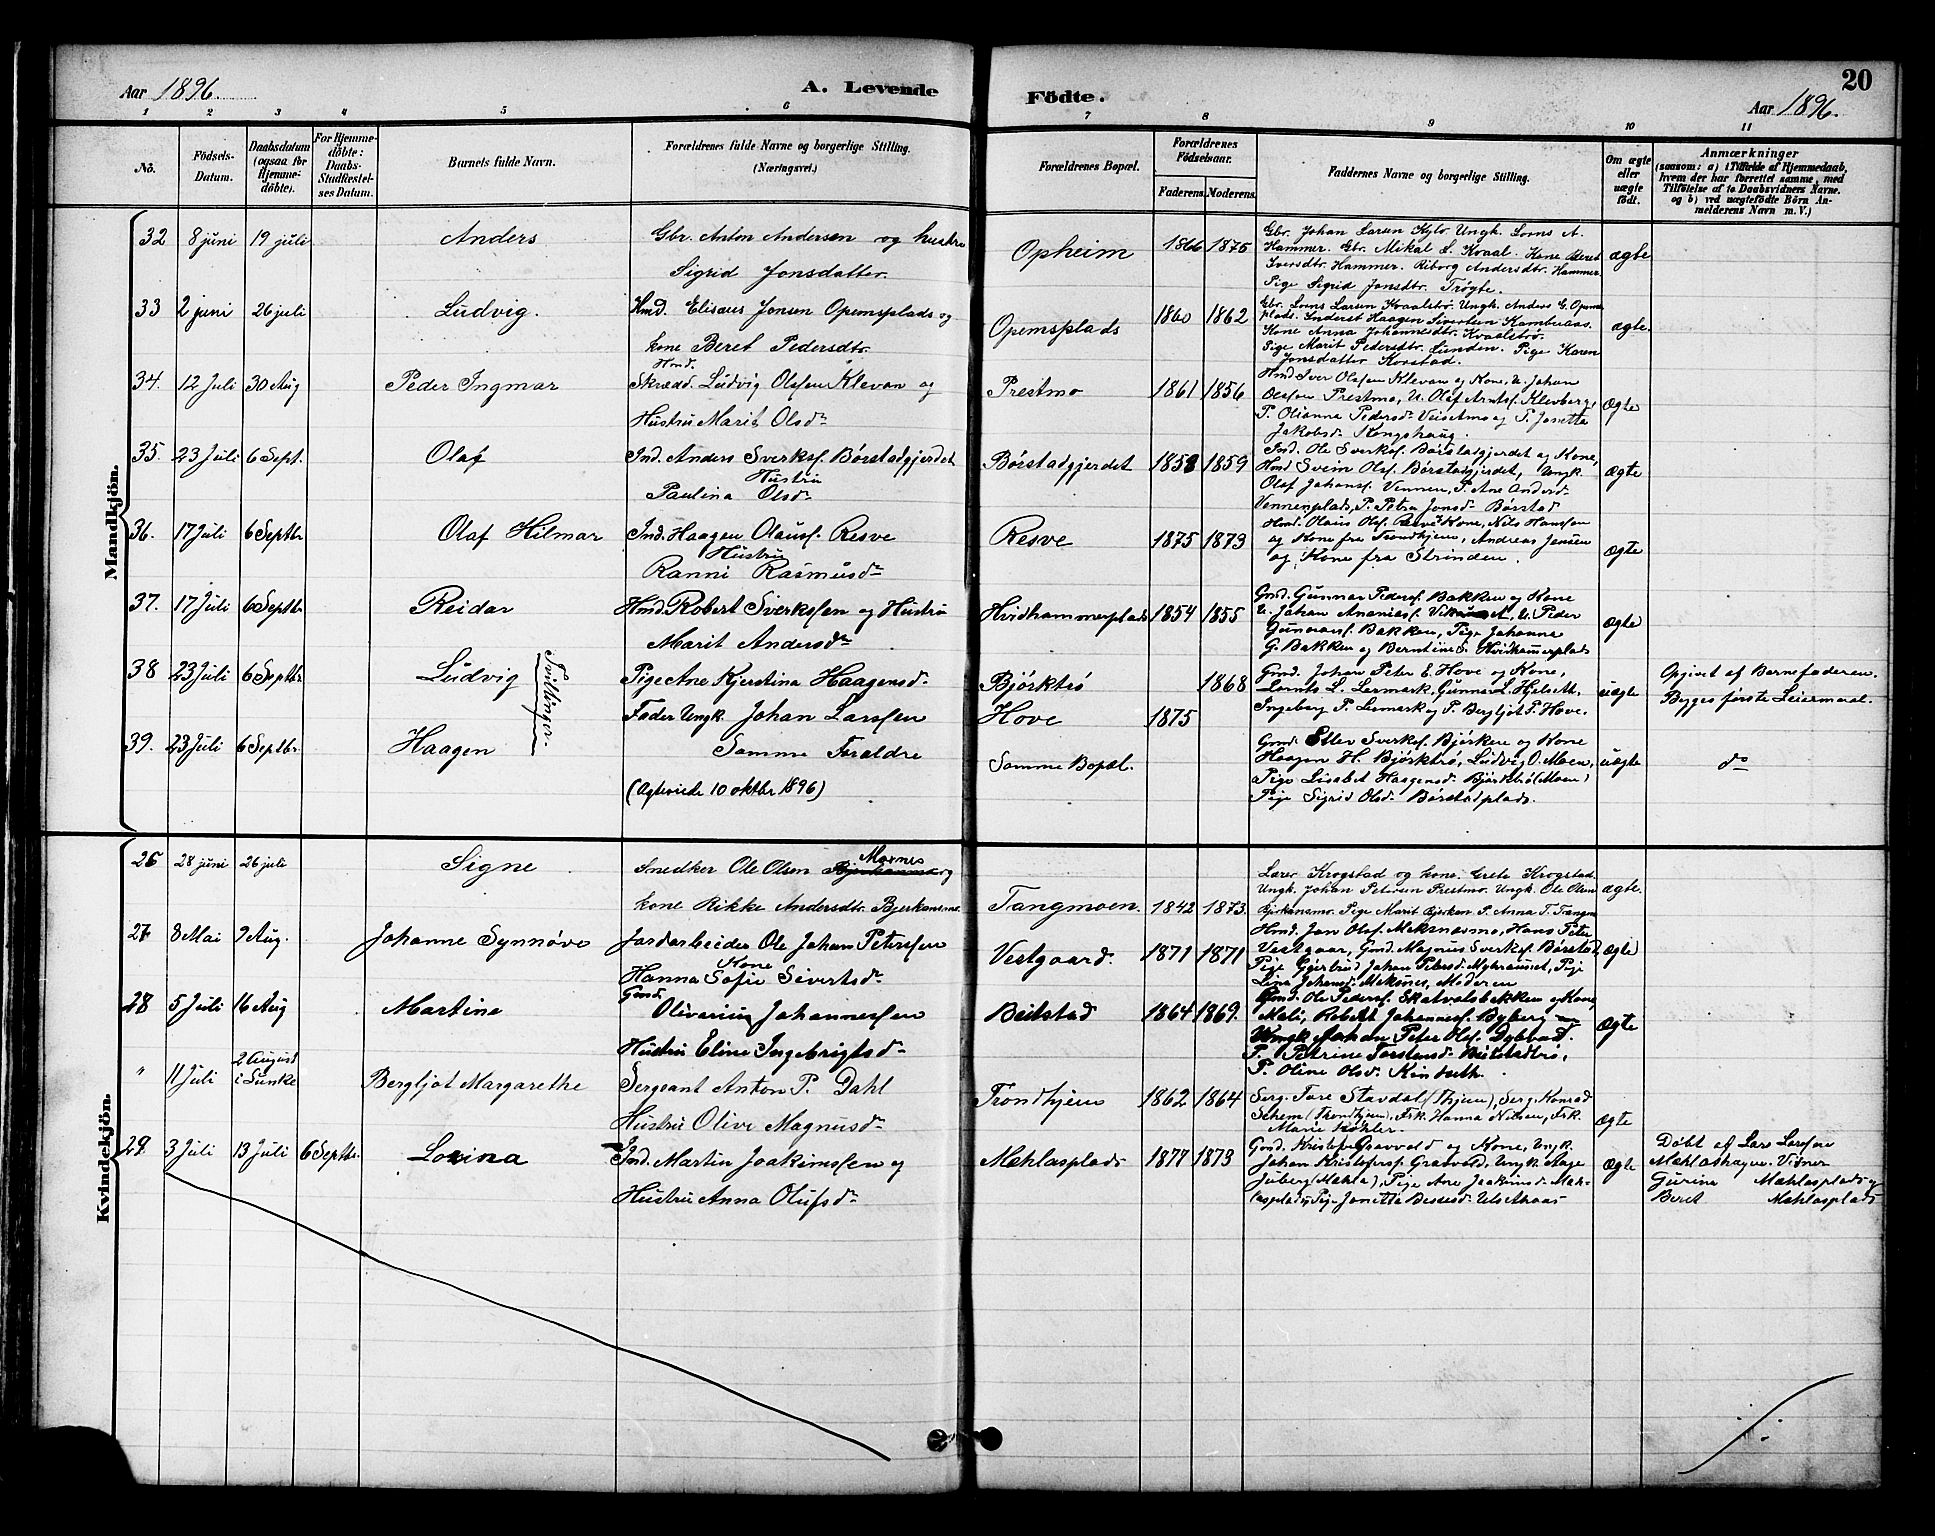 Aar 1896. A. Levende Födte. Aar 1896. 20
1 2 3 4 5 6 7 8 9 10 11
No. Födsels-Datum. Daabsdatum (ogsaa for Hjemmedöbte). For Hjemmedöbte: Daabs-Stadfæstelses Datum. Barnets fulde Navn. Forældrenes fulde Navne og borgerlige Stilling. (Næringsvei.) Forældrenes Bopæl. Forældrenes Födselsaar. Faderens. Moderens. Faddernes Navne og borgerlige Stilling. Om ægte eller uægte födt. Anmærkninger
(saasom: a) i Tilfælde af Hjemmedaab, hvem der har forrettet samme, med Tilföielse af to Daabsvidners Navne. og b) ved uægtefödte Börn Anmelderens Navn m. V.)
Mandkjön.
32 8 juni 19 juli Anders Gbr. Anton Andersen og hustru
Sigrid Jonsdatter
Opheim 1866 1875
Gbr. Johan Larsen Kylo. Ungk. Lorns A.
Hammer. Gbr. Mikal L. Kvaal. Kone Beret
Iversdtr. Hammer. Riborg Andersdtr. Hammer
Pige Sigrid Jonsdtr. Trøgte.
ægte
33 2 juni 26 juli Ludvig. Hmd. Elisæus Jonsen Opemsplads og
kone Beret Pedersdtr.
Opemsplads 1860 1862
Gbr. Lorns Larsen Kvaalstrø. Ungk. Anders G. Opems
plads. Inderst Haagen Sivertsen
Kone Anna Johannesdtr. Kvaalstrø.
Pige Marit Pedersdtr. Lunden. Pige Karen
Jonsdatter Korstad.
ægte.
34. 12 Juli 30 Aug Peder Ingmar Hmd.
Skrædd. Ludvig Olsen Klevan og
Hustru Marit Olsdr
Prestmo 1861 1856
Hmd. Iver Olsen Klevan og Kone, U. Johan
Olsen Prestmo, U. Olaf Arntsf. Klevberg,
P. Olianna Pedersdr. Veisetmo og P. Jonetta
Jakobsdr Kongshaug.
Ægte
35. 23 Juli 6 Sept. Olaf Ind. Anders Sverksf. Børstadgjerdet
Hustru
Paulina Olsdr
Børstadgjerdet 1858 1859
Ind. Ole Sverksf. Børstadgjerdet og Kone,
Hmd Svein Olsf. Børstadgjerdet, Ungk.
Olaf Johansf. Vennen, P. Ane Andersdr
Vennenplads, P. Petra Jonsdr Børstad
Ægte
36. 17 Juli 6 Septbr Olaf Hilmar Ind. Haagen Olausf. Resve
Hustru
Ranni Rasmusdr
Resve 1875 1873
Hmd. Olaus Olsf. Resve og Kone, Nils Hansen
og Kone fra Trondhjem, Andreas Jensen
og Kone fra Strinden.
Ægte
37. 17 Juli 6 Septbr Reidar Hmd. Robert Sverkssen og Hustru
Marit Andersdr
Hvidhammerplads 1854 1855
Gmd. Gunnar Pedersf. Bakken og Kone
U. Johan Ananiasf. U. Peder
Gunnarsf. Bakken, Pige Johanna
G. Bakken og Berntine S. Hvidhamerplads
Ægte
38 23 Juli 6 Septbr Ludvig Pige Ane Kjerstina Haagensdr
Fader Ungk. Johan Larssen
Tvillinger.
Bjørktrø 1868
Hove 1875
Gmd. Johan Peter E. Hove og Kone,
Lornts L. Lermark, Gunner L. Helseth,
Ingeborg P. Lermark og P. Bergljot P. Hove.
uægte
Opgivet af Barnefaderen.
Begges første Leiermaal.
39. 23 Juli 6 Septbr. Haagen Samme Forældre
(Ægteviede 10 oktbr 1896)
Samme Bopæl.
Gmd. Ellev Sverksf. Bjerken og Kone
Haagen H. Bjørktrø, Ludvig O. Moen,
Pige Lisabet Haagensdr Bjørktrø (Moen)
Pige Sigrid Olsdr Børstadplads.
uægte
do
Kvindekjön.
26 28 juni 26 juli Signe Snedker Ole Olsen Moxnes og
kone Rikke Andersdtr. Bjerkansmo
Tangmoen. 1842 1873.
Lærer Krogstad og kone Grete Krogstad.
Ungk. Johan Petersen Prestmo. Ungk. Ole Olsen
Bjerkansmo. Pige Marit Bjerkan P. Anna T. Tangm
ægte.
27 8 Mai 9 Aug. Johanne Synnøve Jordarbeider Ole Johan Peterssen
Kone
Hanna Sofie Sivertsdr
Vestgaard. 1871 1871
Hmd. Jon Olsf. Meksnesmo, Hans Peter
Vestgaar, Gmd. Magnus Sverksf. Børstad,
Pige Gjertrud Johan Petersdr Myhraunet, Pige
Lina Johansdr Meksnes, Moderen
Ægte
28 5 Juli 16 Aug Martine Gmd.
Oliverius Johannessen
Hustru Eline Ingebrigtsdr
Beitstad 1864 1869.
Gmd. Ole Pedersf. Skatvalsbakken og Kone,
Mali, Robert Johannesf. Byberg
Ungk Johan Peter Olsf. Dybvad,
P. Petrine Torstensdr Beitstadtrø,
P. Oline Olsdr Kindseth.
Ægte
" 11 Juli 2 August
i Lunke
Bergljot Margarethe Sergeant Anton P. Dahl
Hustru Olive Magnusdr
Trondhjem 1862 1864
Serg. Tore Stavdal (Thjem), Serg. Konrad
Schem (Trondhjem), Frk. Hanna Nilsen, Frk.
Marie Køhler.
Ægte
29 3 Juli 13 Juli 6 Septbr. Lovina Ind. Martin Joakimssen og
Hustru Anna Olufsdr
Mæhlasplads 1877 1873
Gmd. Kristofer Græsvold og Kone, Ungk.
Johan Kristofersf. Græsvold, Ungk. Aage
Juberg (Mæhla), Pige Ane Joakimsdr Mæh-
lasplads, Pige Jonetta
Ægte
Døbt af Lars Larssen
Mæhlashagen. Vidner
Gurina Mæhlasplads og
Beret Mæhlasplads